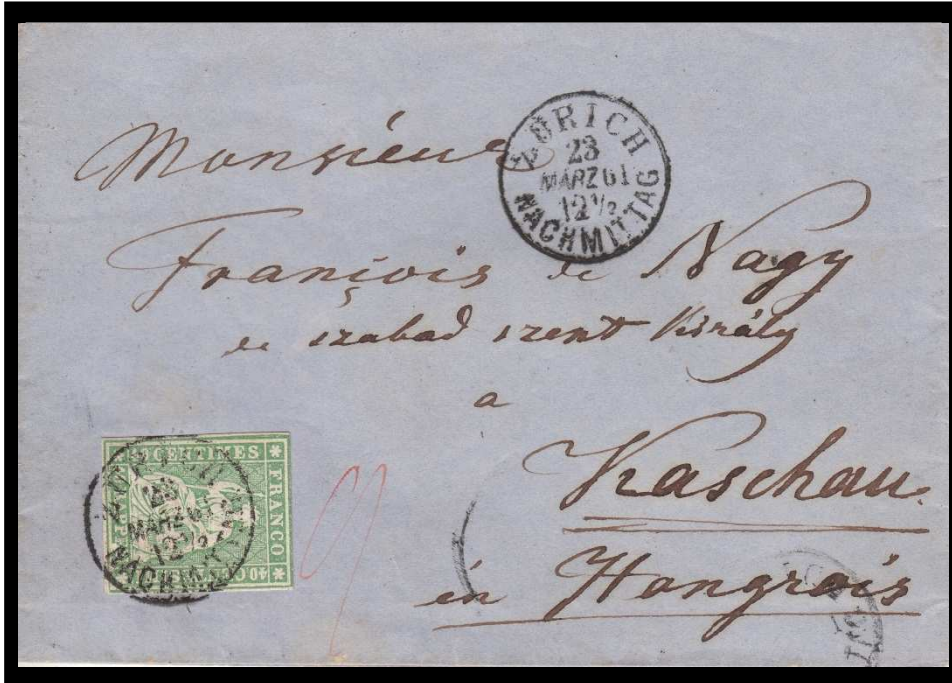 ZÜRICH
23
MÄRZ 61
12 1/2
NACHMITTAG
Monsieur
François de Nagy
de szabad szent Király
a
Kaschau
in Hongrois
CENTIMES
FRANCO
40
23
MÄRZ 61
12 1/2
NACHMITTAG